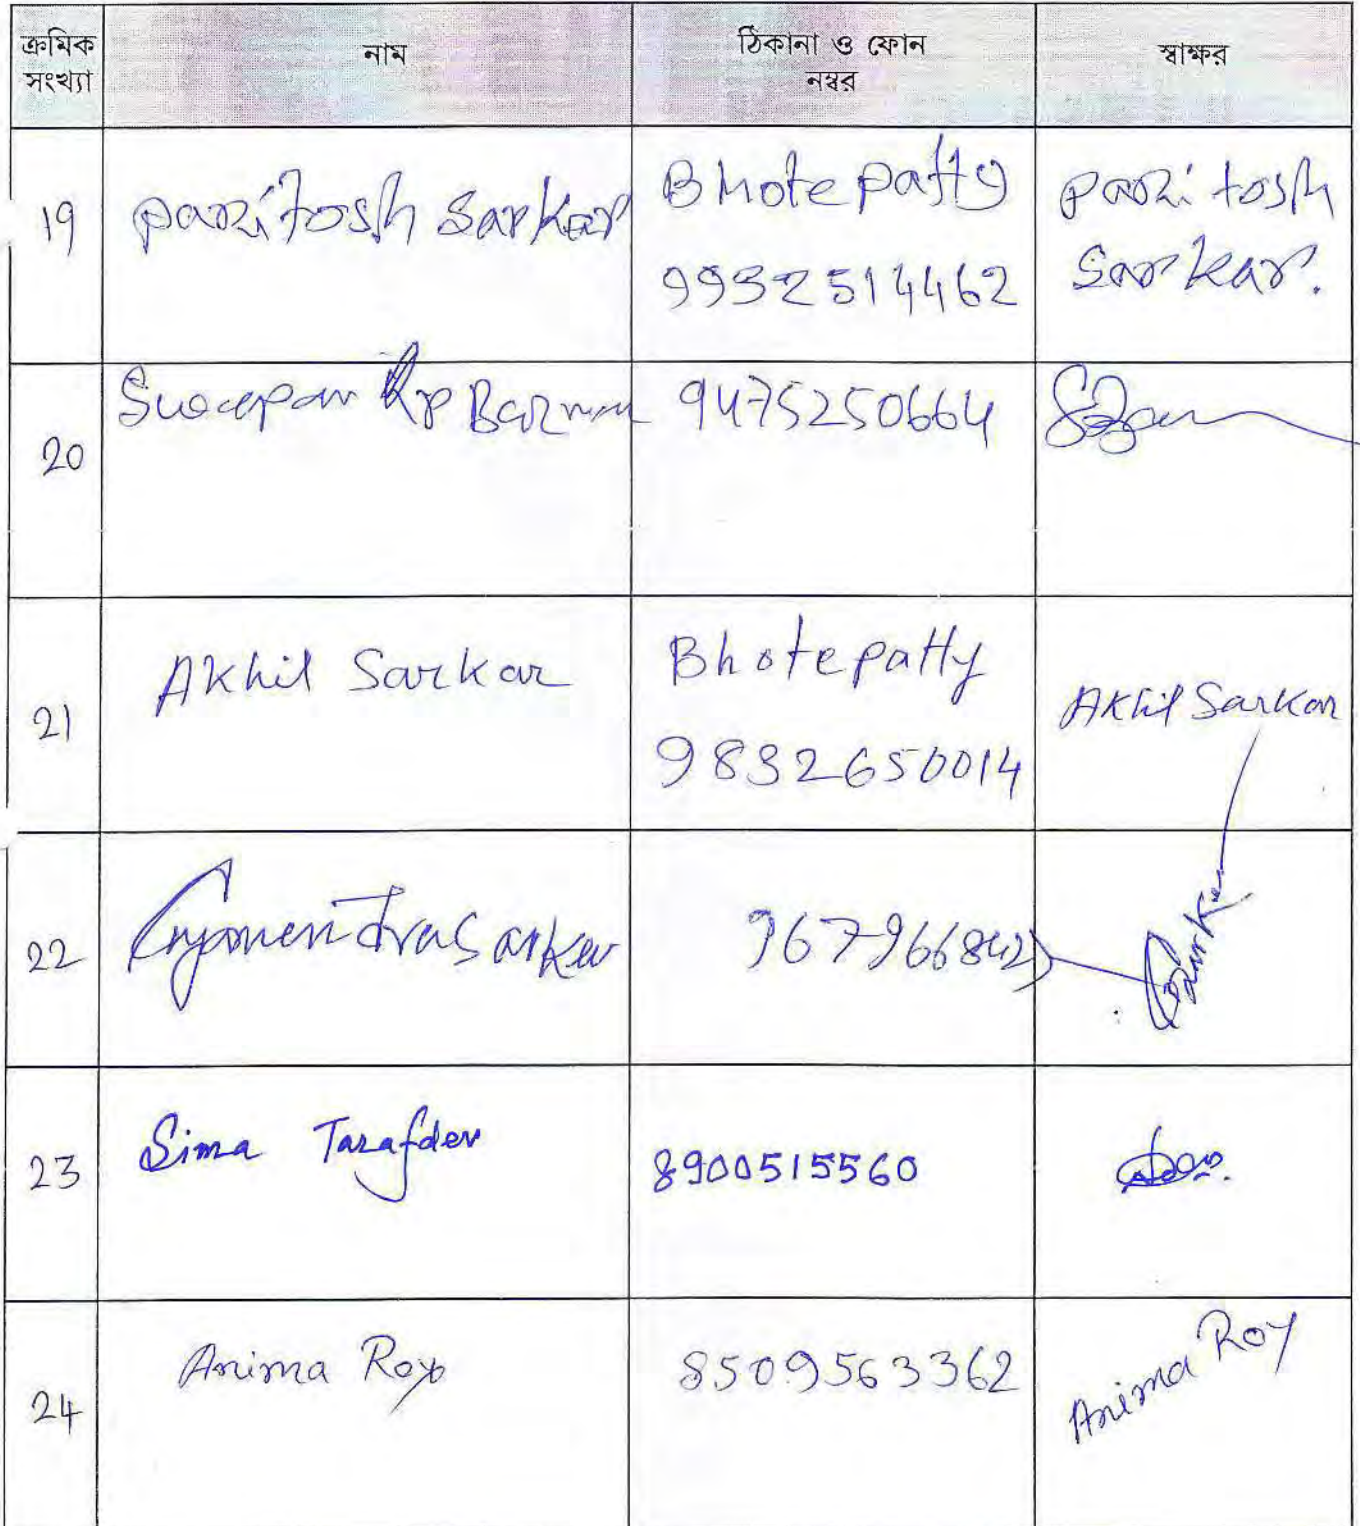 ক্রমিক সংখ্যা
নাম
ঠিকানা ও ফোন নম্বর
স্বাক্ষর
19
Paritosh Sarkar
Bhotepatty
9932514462
Paritosh
Sarkar.
20
Swapan Kr Barman
9475250664
21
Akhil Sarkar
Bhotepatty
9832650014
Akhil Sarkar
22
Sarkar
Sarkar
23
Sima Tarafder
8900515560
24
Anima Roy
8509563362
Anima Roy